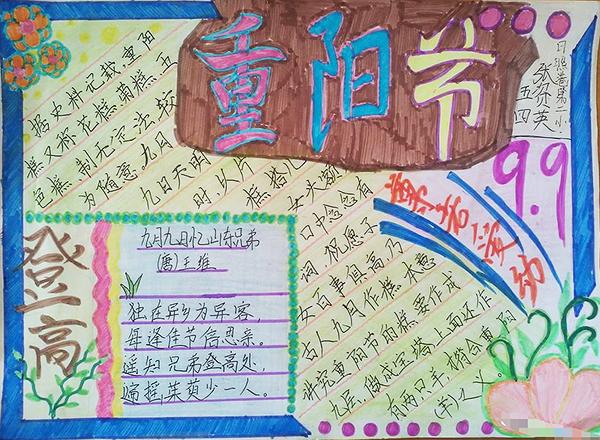 重阳节
日照港第二小
张弥英
五四
9.9
据史料记载,重阳
糕又称花糕、菊糕、五
色糕,制无定法,较
为随意。九月
九日天明
时,以片
糕搭儿
女头额,
口中念念有
词,祝愿子
女百事俱高,乃
古人九月作糕本意。
讲究重阳节的糕要作成
九层,做成宝塔,上面还作
有两只羊,相合重阳
(羊)之义。
登高
九月九日忆山东兄弟
(唐)王维
独在异乡为异客,
每逢佳节倍思亲。
遥知兄弟登高处,
遍插茱萸少一人。